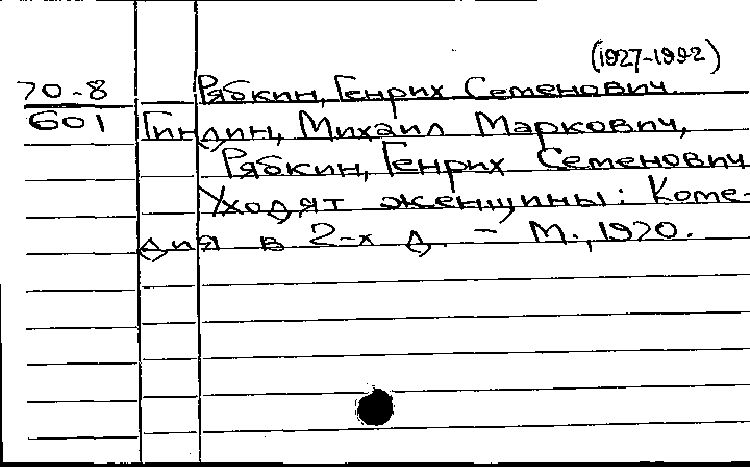 (1927-1992)
70-8 Рябкин, Генрих Семенович.
601 Гиндин, Михаил Маркович,
Рябкин, Генрих Семенович
Уходят женщины: Коме-
дия в 2-х д. – М., 1970.